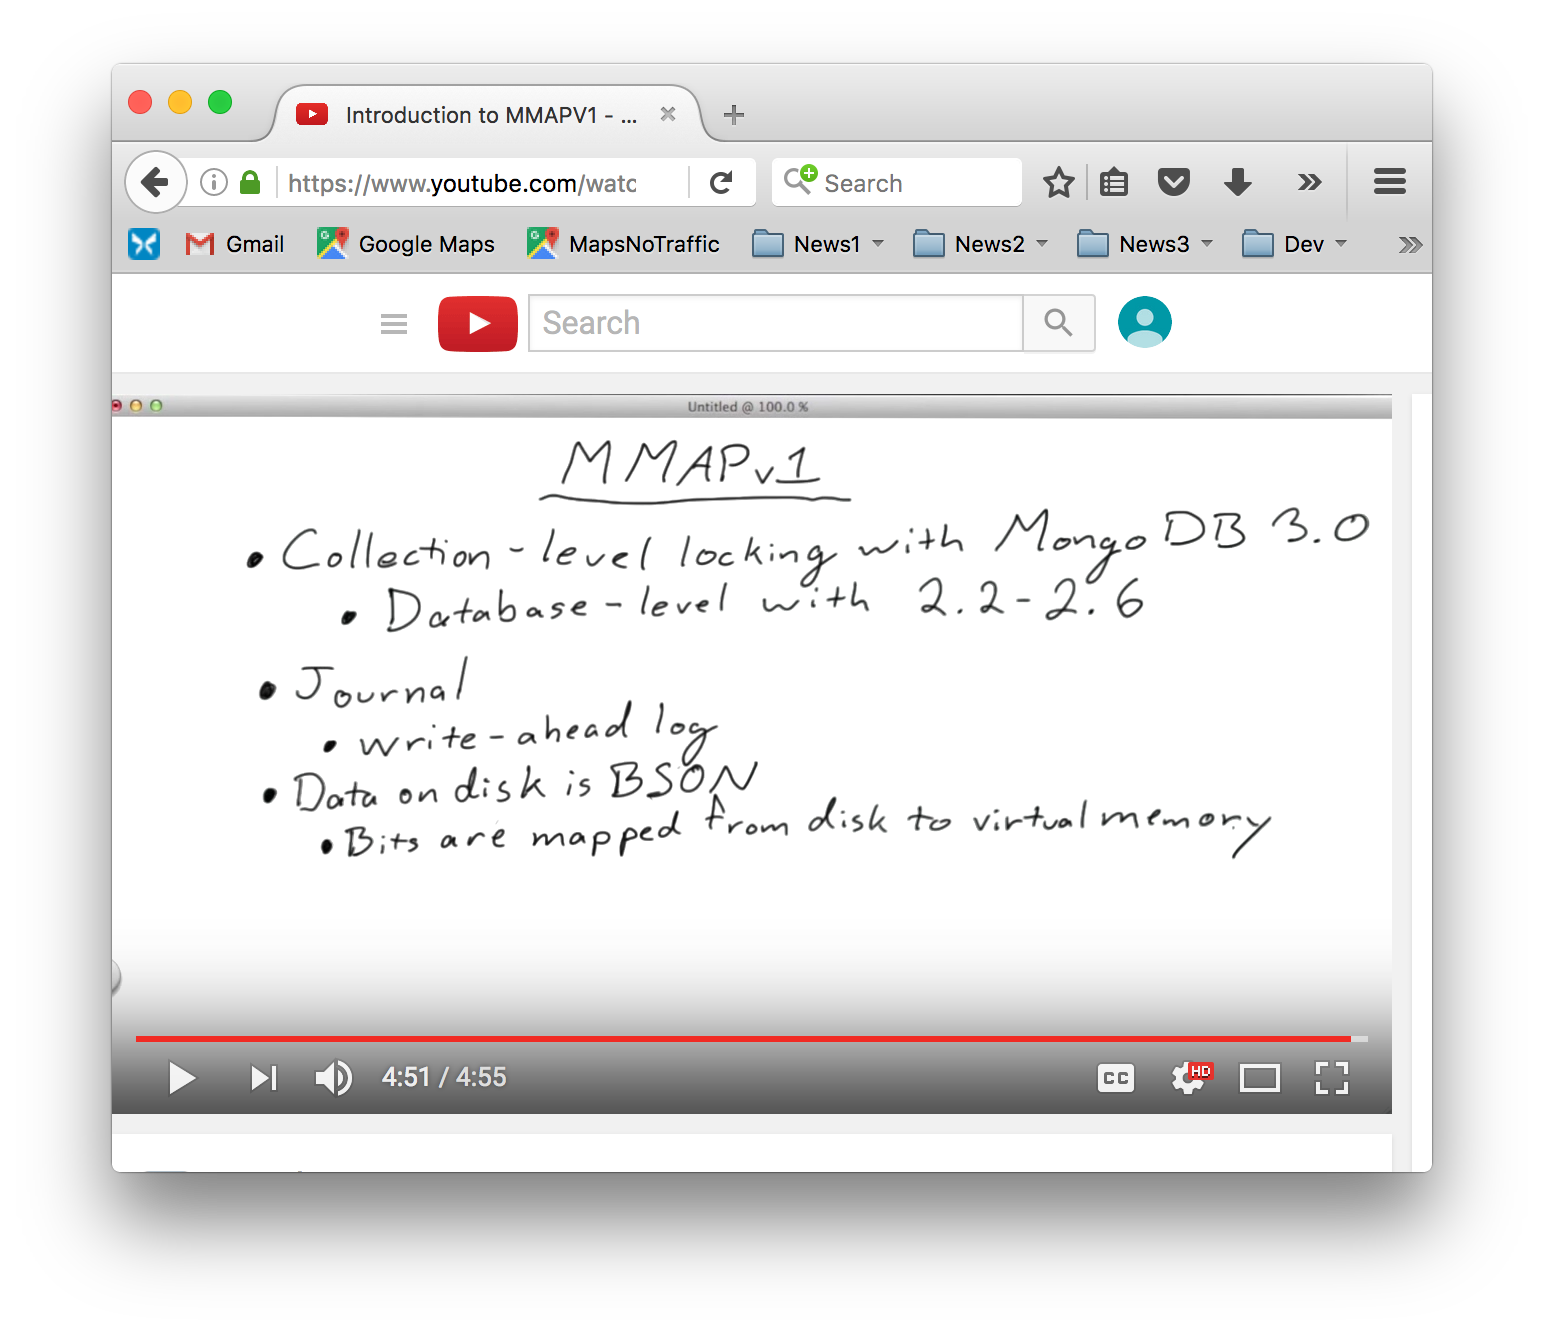 Introduction to MMAPV1 - ...
https://www.youtube.com/watc
Search
Gmail
Google Maps
MapsNoTraffic
News1
News2
News3
Dev
Search
Untitled @ 100.0 %
MMAPv1
• Collection-level locking with MongoDB 3.0
• Database-level with 2.2-2.6
• Journal
• write-ahead log
• Data on disk is BSON
• Bits are mapped from disk to virtual memory
4:51 / 4:55
CC
HD